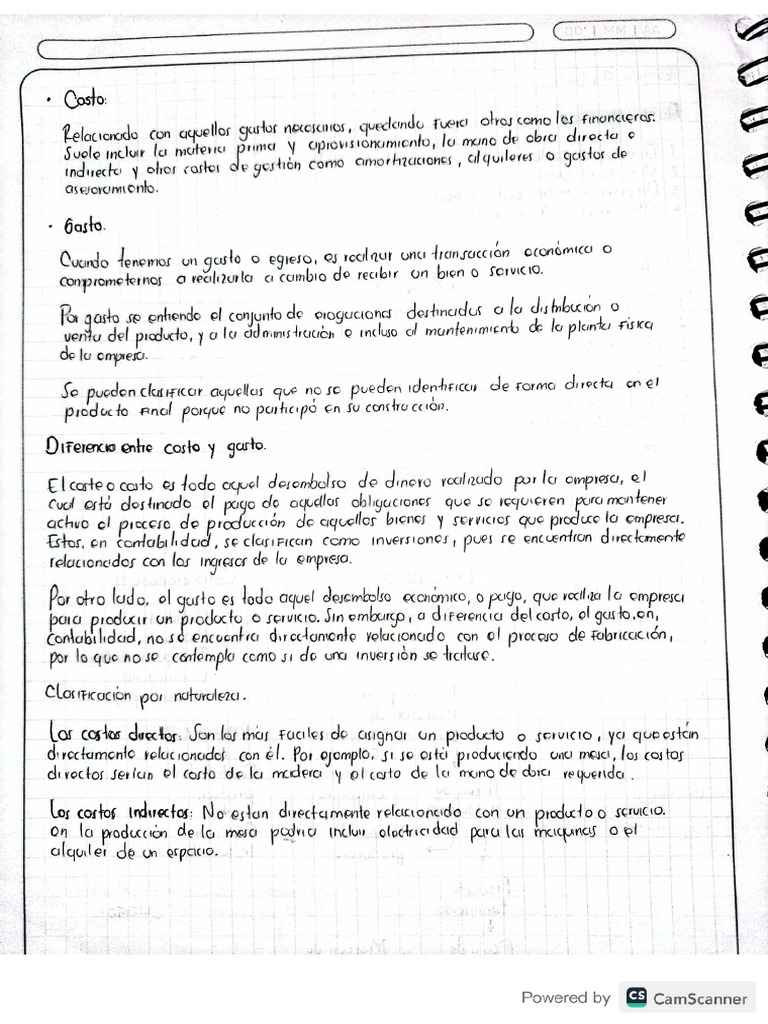 · Costo:
Relacionado con aquellos gastos necesarios, quedando fuera otros como los financieros.
Suele incluir la materia prima y aprovisionamiento, la mano de obra directa e
indirecta y otros costes de gestión como amortizaciones, alquileres o gastos de
asesoramiento.
· Gasto.
Cuando tenemos un gasto o egreso, es realizar una transacción económica o
comprometernos a realizarla a cambio de recibir un bien o servicio.
Por gasto se entiende el conjunto de erogaciones destinadas a la distribución o
venta del producto, y a la administración e incluso al mantenimiento de la planta fisica
de la empresa.
Se pueden clasificar aquellas que no se pueden identificar de forma directa en el
producto final porque no participó en su construcción.
Diferencia entre costo y gasto.
El coste o costo es todo aquel desembolso de dinero realizado por la empresa, el
cual está destinado al pago de aquellas obligaciones que se requieren para mantener
activo el proceso de producción de aquellos bienes y servicios que produce la empresa.
Estos, en contabilidad, se clasifican como inversiones, pues se encuentran directamente
relacionados con los ingresos de la empresa.
Por otro lado, el gasto es todo aquel desembolso económico, o pago, que realiza la empresa
para producir un producto o servicio. Sin embargo, a diferencia del costo, el gasto, en,
contabilidad, no se encuentra directamente relacionado con el proceso de fabricación,
por lo que no se contempla como si de una inversión se tratase.
Clasificación por naturaleza.
Los costos directos: Son los más faciles de asignar un producto o servicio, ya que están
directamente relacionados con él. Por ejemplo, si se está produciendo una mesa, los costos
directos serían el costo de la madera y el costo de la mano de obra requerida.
Los costos indirectos: No estan directamente relacionado con un producto o servicio.
en la producción de la mesa podria incluir electricidad para las maquinas o el
alquiler de un espacio.
Powered by CS CamScanner